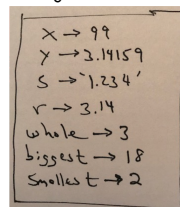 x → 99
y → 3.14159
s → '1.234'
r → 3.14
whole → 3
biggest → 18
smallest → 2